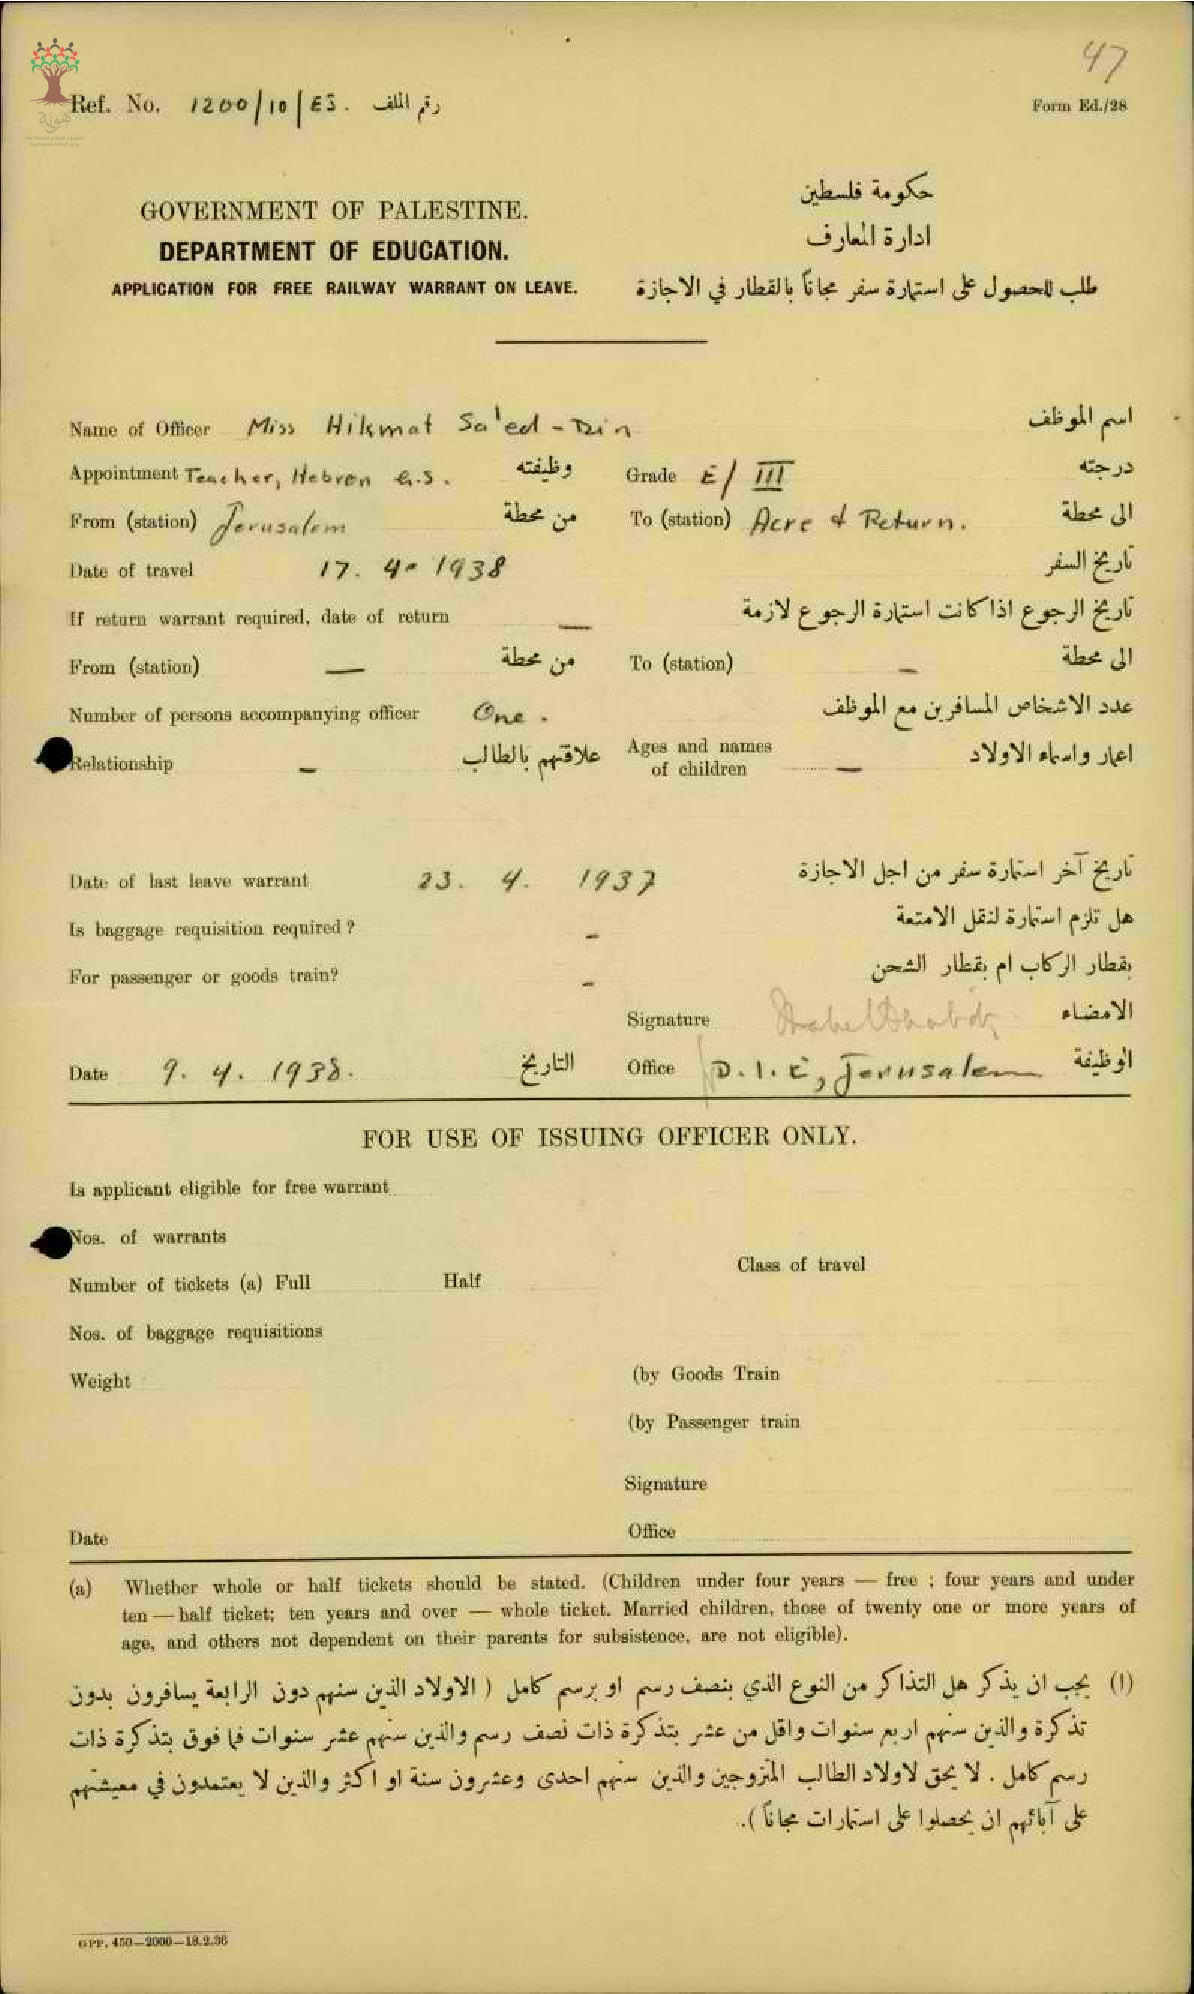 47
Ref. No. 1200/10/E3. رقم الملف
Form Ed./28
هوية
GOVERNMENT OF PALESTINE.
DEPARTMENT OF EDUCATION.
APPLICATION FOR FREE RAILWAY WARRANT ON LEAVE.
حكومة فلسطين
ادارة المعارف
طلب للحصول على استمارة سفر مجاناً بالقطار في الاجازة
Name of Officer Miss Hikmat Sa'ed-Din اسم الموظف
Appointment Teacher, Hebron G.S. وظيفته Grade E/III درجته
From (station) Jerusalem من محطة To (station) Acre & Return. الى محطة
Date of travel 17. 4. 1938 تاريخ السفر
If return warrant required, date of return — تاريخ الرجوع اذا كانت استمارة الرجوع لازمة
From (station) — من محطة To (station) — الى محطة
Number of persons accompanying officer One. عدد الاشخاص المسافرين مع الموظف
Relationship — علاقتهم بالطالب Ages and names of children — اعمار واسماء الاولاد
Date of last leave warrant 23. 4. 1937 تاريخ آخر استمارة سفر من اجل الاجازة
Is baggage requisition required? — هل تلزم استمارة لنقل الامتعة
For passenger or goods train? — بقطار الركاب ام بقطار الشحن
Signature الامضاء
Date 9. 4. 1938. التاريخ Office D.I.E, Jerusalem الوظيفة
FOR USE OF ISSUING OFFICER ONLY.
Is applicant eligible for free warrant
Nos. of warrants
Class of travel
Number of tickets (a) Full Half
Nos. of baggage requisitions
Weight (by Goods Train
(by Passenger train
Signature
Date Office
(a) Whether whole or half tickets should be stated. (Children under four years — free ; four years and under
ten — half ticket; ten years and over — whole ticket. Married children, those of twenty one or more years of
age, and others not dependent on their parents for subsistence, are not eligible).
(ا) يجب ان يذكر هل التذاكر من النوع الذي بنصف رسم او برسم كامل ( الاولاد الذين سنهم دون الرابعة يسافرون بدون
تذكرة والذين سنهم اربع سنوات واقل من عشر بتذكرة ذات نصف رسم والذين سنهم عشر سنوات فما فوق بتذكرة ذات
رسم كامل . لا يحق لاولاد الطالب المتزوجين والذين سنهم احدى وعشرون سنة او اكثر والذين لا يعتمدون في معيشتهم
على آبائهم ان يحصلوا على استمارات مجاناً ).
GPP. 450—2000—18.2.36